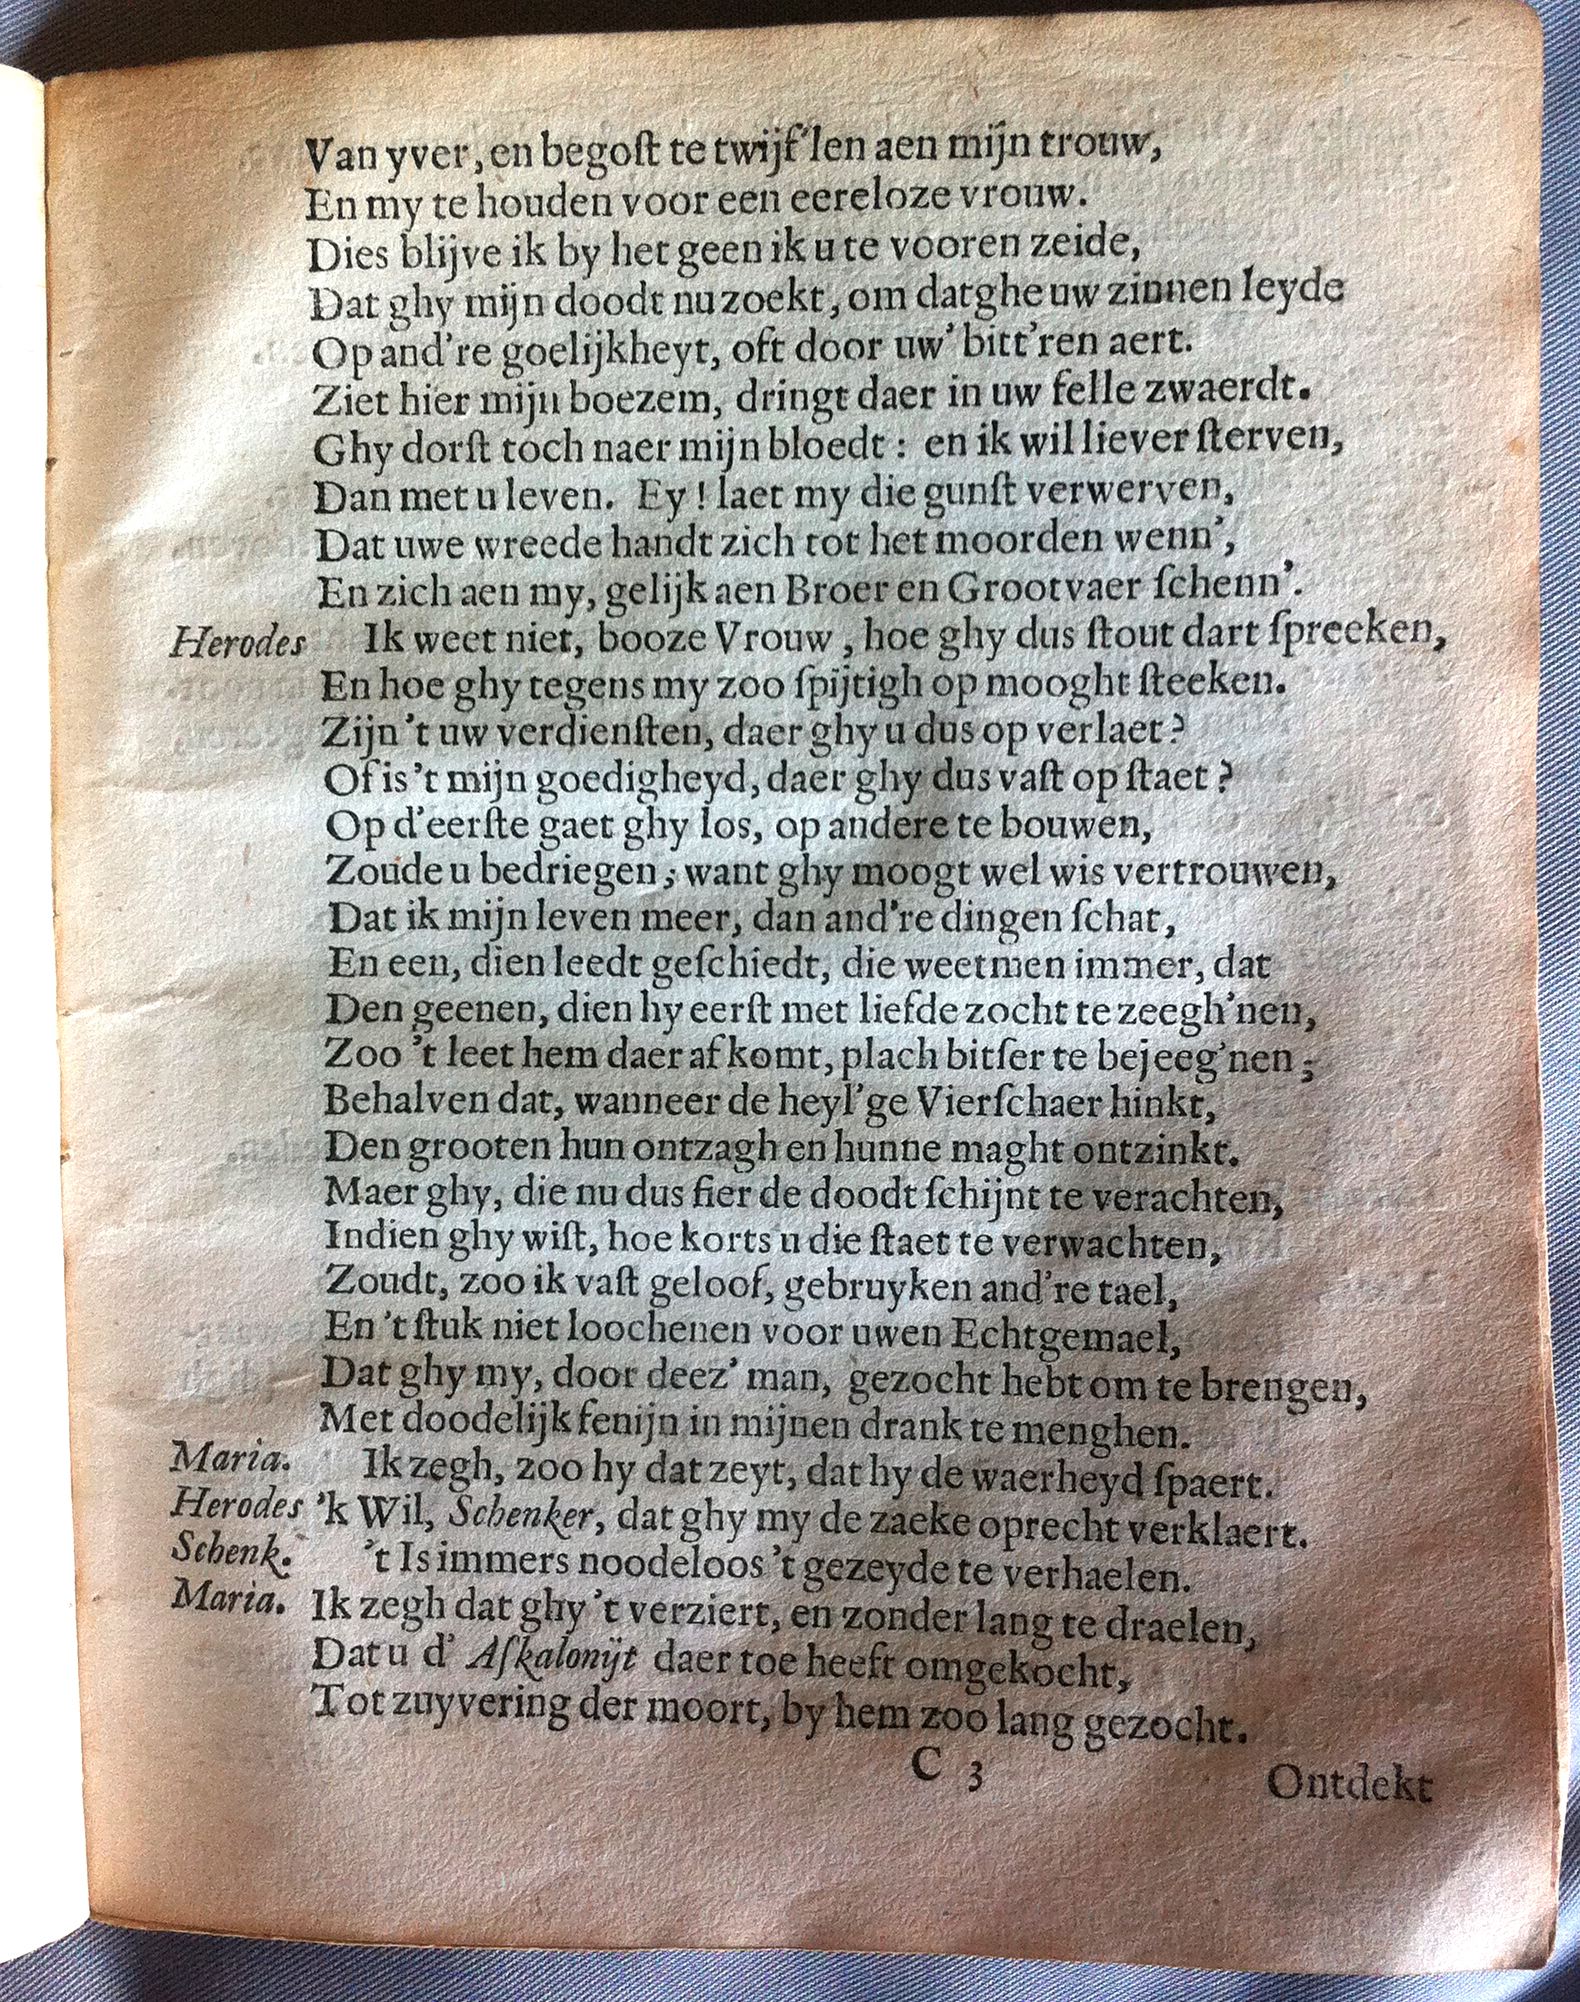 Van yver, en begoſt te twijf'len aen mijn trouw,
En my te houden voor een eereloze vrouw.
Dies blijve ik by het geen ik u te vooren zeide,
Dat ghy mijn doodt nu zoekt, om dat ghe uw zinnen leyde
Op and're goelijkheyt, oft door uw' bitt'ren aert.
Ziet hier mijn boezem, dringt daer in uw felle zwaerdt.
Ghy dorſt toch naer mijn bloedt: en ik wil liever ſterven,
Dan met u leven. Ey! laet my die gunſt verwerven,
Dat uwe wreede handt zich tot het moorden wenn',
En zich aen my, gelijk aen Broer en Grootvaer ſchenn'.
Herodes Ik weet niet, booze Vrouw, hoe ghy dus ſtout dart ſpreeken,
En hoe ghy tegens my zoo ſpijtigh op mooght ſteeken.
Zijn 't uw verdienſten, daer ghy u dus op verlaet?
Of is 't mijn goedigheyd, daer ghy dus vaſt op ſtaet?
Op d'eerſte gaet ghy los, op andere te bouwen,
Zoude u bedriegen; want ghy moogt wel wis vertrouwen,
Dat ik mijn leven meer, dan and're dingen ſchat,
En een, dien leedt geſchiedt, die weet men immer, dat
Den geenen, dien hy eerſt met liefde zocht te zeegh'nen,
Zoo 't leet hem daer af komt, plach bitſer te bejeeg'nen;
Behalven dat, wanneer de heyl'ge Vierſchaer hinkt,
Den grooten hun ontzagh en hunne maght ontzinkt.
Maer ghy, die nu dus fier de doodt ſchijnt te verachten,
Indien ghy wiſt, hoe korts u die ſtaet te verwachten,
Zoudt, zoo ik vaſt geloof, gebruyken and're tael,
En 't ſtuk niet loochenen voor uwen Echtgemael,
Dat ghy my, door deez' man, gezocht hebt om te brengen,
Met doodelijk fenijn in mijnen drank te menghen.
Maria. Ik zegh, zoo hy dat zeyt, dat hy de waerheyd ſpaert.
Herodes 'k Wil, Schenker, dat ghy my de zaeke oprecht verklaert.
Schenk. 't Is immers noodeloos 't gezeyde te verhaelen.
Maria. Ik zegh dat ghy 't verziert, en zonder lang te draelen,
Dat u d' Aſkalonijt daer toe heeft omgekocht,
Tot zuyvering der moort, by hem zoo lang gezocht.
C 3 Ontdekt